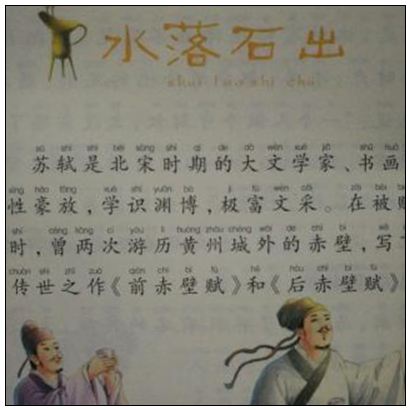 水落石出
shuǐ luò shí chū
sū shì shì běi sòng shí qī de dà wén xué jiā shū huà
苏轼是北宋时期的大文学家、书画
xìng háo fàng xué shí yuān bó jí fù wén cǎi zài bèi
性豪放，学识渊博，极富文采。在被
shí céng liǎng cì yóu lì huáng zhōu chéng wài de chì bì xiě
时，曾两次游历黄州城外的赤壁，写
chuán shì zhī zuò qián chì bì fù hé hòu chì bì fù
传世之作《前赤壁赋》和《后赤壁赋》